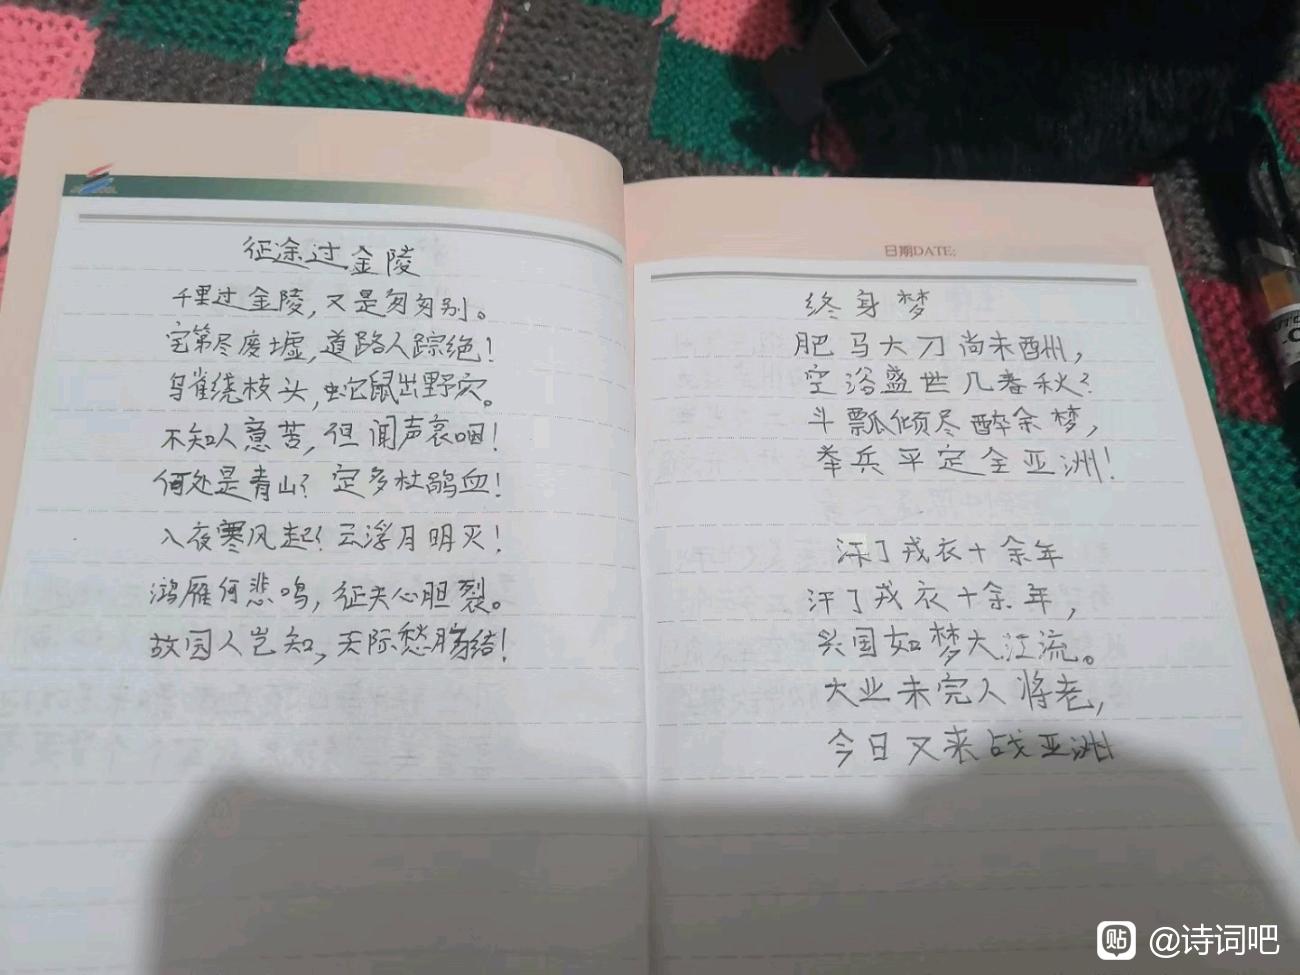 征途过金陵
千里过金陵,又是匆匆别。
宅第尽废墟,道路人踪绝!
鸟雀绕枝头,蛇鼠出野穴。
不知人意苦,但闻声哀咽!
何处是青山?定多杜鹃血!
入夜寒风起!云浮月明灭!
鸿雁何悲鸣,征夫心胆裂。
故园人岂知,天际愁肠结!
日期DATE:
终身梦
肥马大刀尚未酬,
空浴盛世几春秋?
斗瓢倾尽醉余梦,
举兵平定全亚洲!
汗了戎衣十余年
汗了戎衣十余年,
兴国如梦大江流。
大业未完人将老,
今日又来战亚洲
贴 @诗词吧